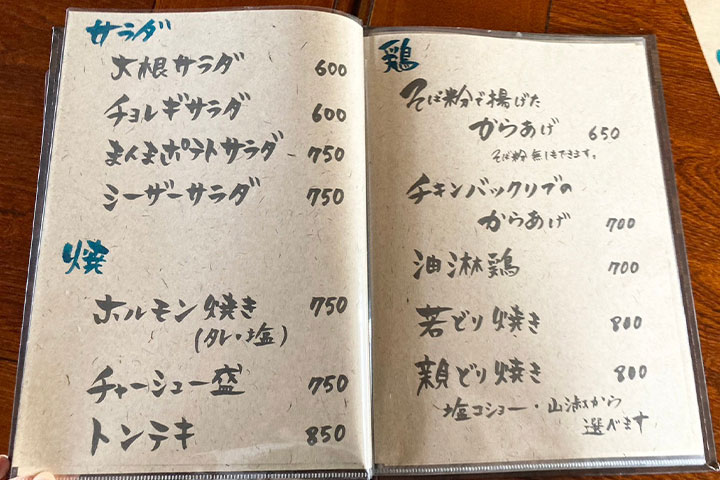 サラダ
大根サラダ 600
チョレギサラダ 600
まんまポテトサラダ 750
シーザーサラダ 750
焼
ホルモン焼き 750
(タレ・塩)
チャーシュー盛 750
トンテキ 850
鶏
そば粉で揚げた
からあげ 650
そば粉無しもできます。
チキンバックリブの
からあげ 700
油淋鶏 700
若どり焼き 800
親どり焼き 800
塩コショー・山淑から
選べます